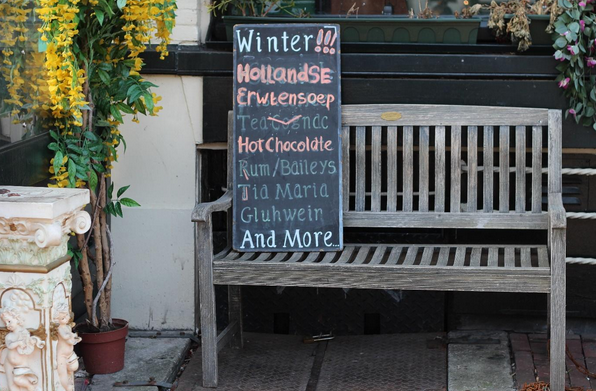 Winter!!!
HOLLANDSE
Erwtensoep
Tea Cognac
Hot Chocolate
Rum/Baileys
Tia Maria
Gluhwein
And More...